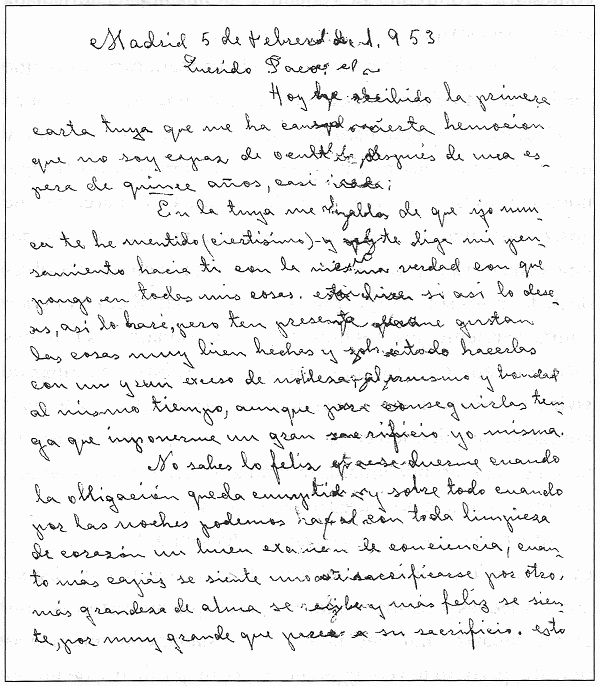 Madrid 5 de febrero de 1.953
Querido Paco:
Hoy he recibido la primera
carta tuya que me ha causado cierta hemocion
que no soy capaz de ocultar, después de una es-
pera de quince años, casi
En la tuya me hablas de que yo nun-
ca te he mentido (ciertisimo) y que te diga mi pen-
samiento hacia ti con la misma verdad con que
pongo en todas mis cosas. si asi lo dese-
as, asi lo haré, pero ten presente que me gustan
las cosas muy bien hechas y sobre todo hacerlas
con un gran exceso de nobleza, y bondad
al mismo tiempo, aunque para conseguirlas ten-
ga que imponerme un gran sacrificio yo misma.
No sabes lo feliz que se duerme cuando
la obligación queda cumplida y sobre todo cuando
por las noches podemos hacer con toda limpieza
de corazón un buen examen de conciencia, cuan-
to más capaz se siente uno de sacrificarse por otro,
más grandeza de alma se recibe y más feliz se sien-
te, por muy grande que parezca su sacrificio. esto